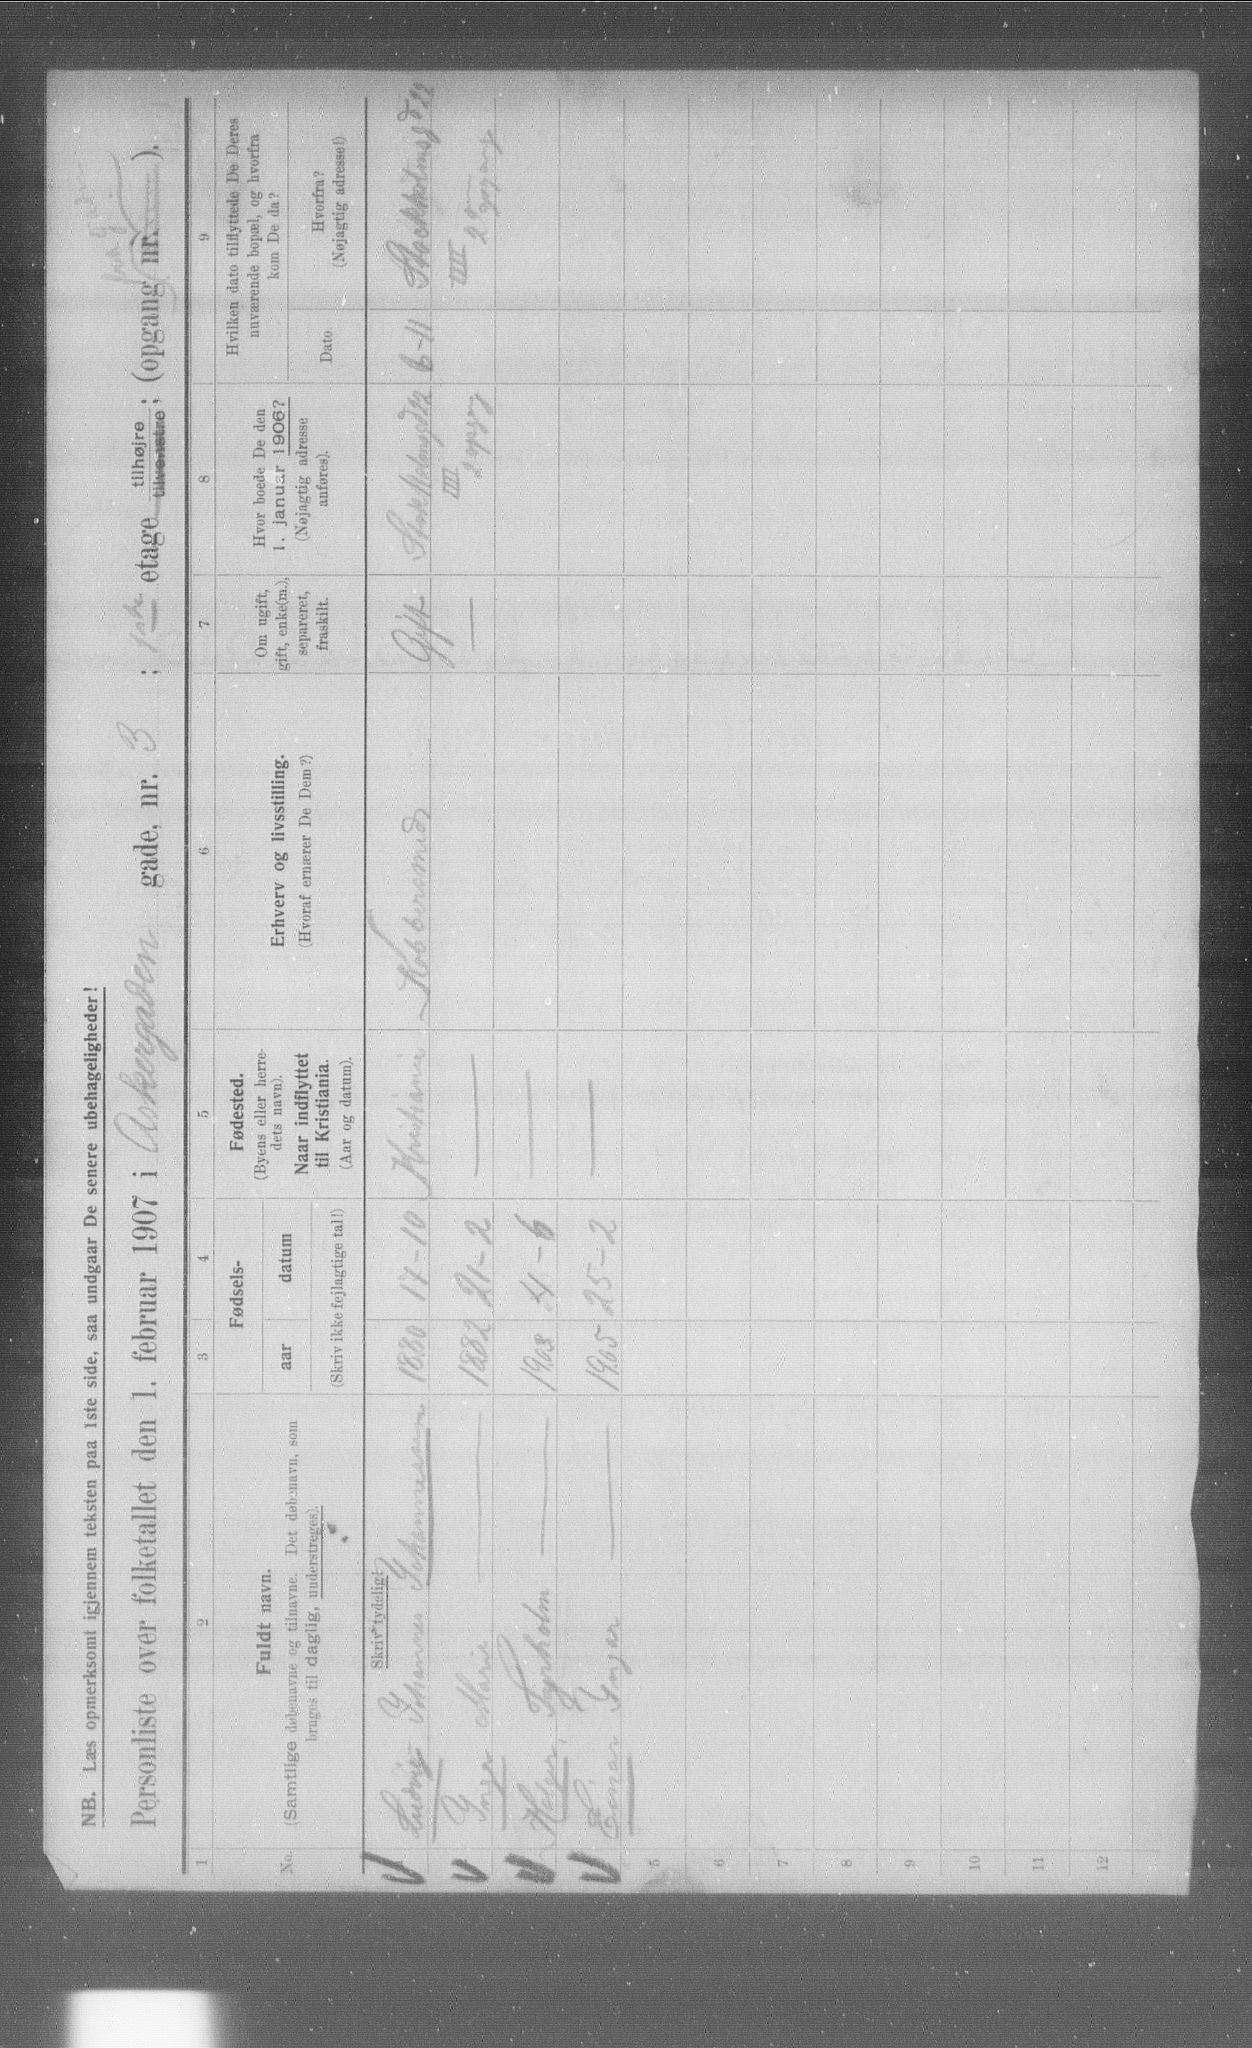 NB. Læs opmerksomt igjennem teksten paa 1ste side, saa undgaar De senere ubehageligheder!
fra Gaden
Personliste over folketallet den 1. februar 1907 i Askergaden gade, nr. 3 ; 1ste etage tilhøjre tilvenstre ; (opgang nr. ).
1 2 3 4 5 6 7 8 9
No.
Fuldt navn.
(Samtlige døbenavne og tilnavne. Det døbenavn, som
bruges til daglig, understreges).
Fødsels-
aar datum
(Skriv ikke fejlagtige tal!)
Fødested.
(Byens eller herre-
dets navn).
Naar indflyttet
til Kristiania.
(Aar og datum).
Erhverv og livsstilling.
(Hvoraf ernærer De Dem?)
Om ugift,
gift, enke(m.),
separeret,
fraskilt.
Hvor boede De den
1. januar 1906?
(Nøjagtig adresse
anføres).
Hvilken dato tilflyttede De Deres
nuværende bopæl, og hvorfra
kom De da?
Dato
Hvorfra?
(Nøjagtig adresse!)
Skriv tydeligt!
Ludvig Johannes Johannessen 1880 17-10 Kristiania Kobbersmed Gift Stockholmsgd 22 6-11 Stockholmsgd 22
IIII 2 opgang IIII 2 opgang
Inga Marie — 1882 21-2 — —
Holger Fynholm — 1903 4-6 —
Einar Ingvar — 1905 25-2 —
5
6
7
8
9
10
11
12